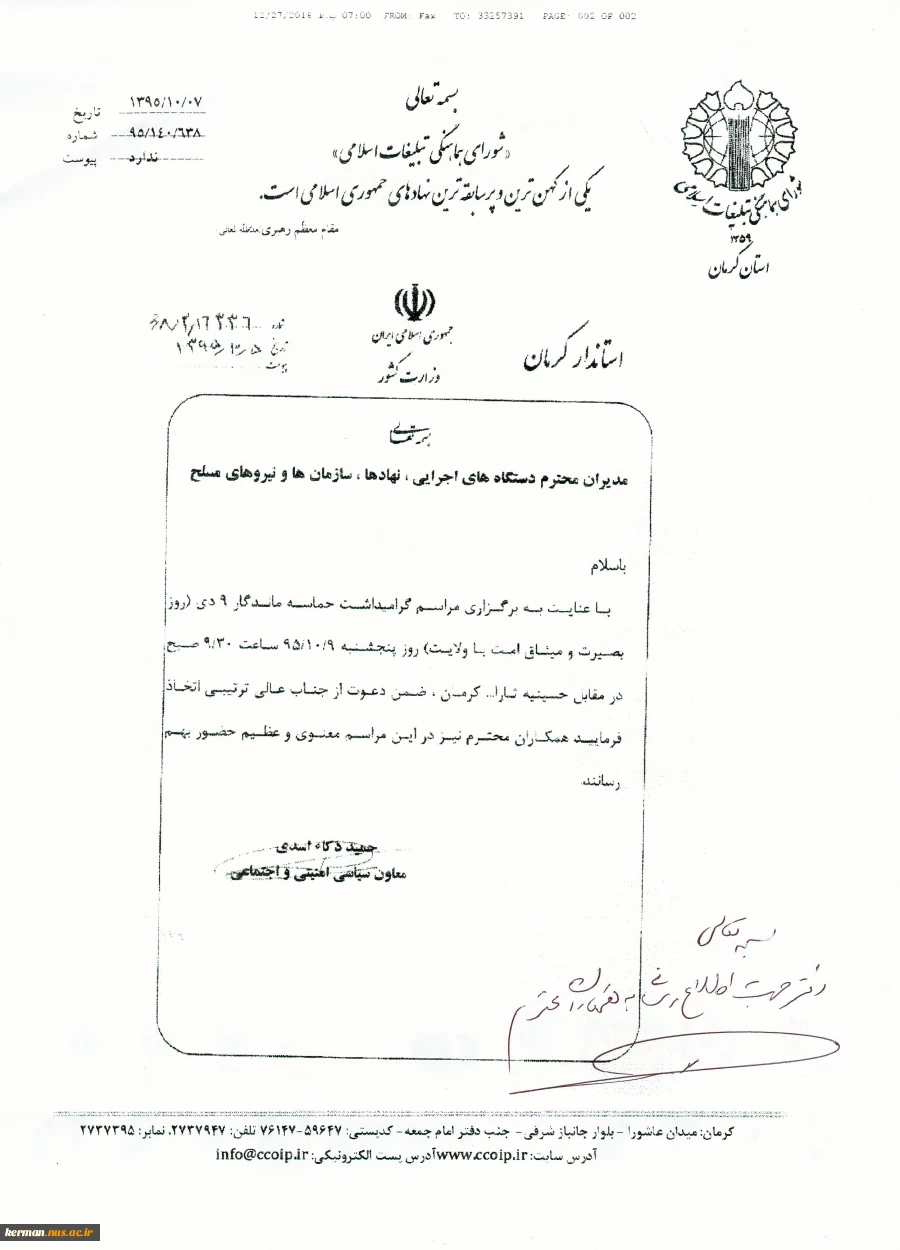 12/27/2016 07:00 FROM: Fax TO: 33257391 PAGE: 002 OF 002
بسمه تعالی
«شورای هماهنگی تبلیغات اسلامی»
یکی از کهن ترین و پرسابقه ترین نهادهای جمهوری اسلامی است.
مقام معظم رهبری مدظله تعالی
تاریخ ۱۳۹۵/۱۰/۰۷
شماره ۹۵/۱٤۰/٦۳۸
پیوست ندارد
شورای هماهنگی تبلیغات اسلامی
۱۳۵۹
استان کرمان
جمهوری اسلامی ایران
وزارت کشور
استاندار کرمان
تاریخ
پیوست
بسمه تعالی
مدیران محترم دستگاه های اجرایی ، نهادها ، سازمان ها و نیروهای مسلح
باسلام
با عنایت به برگزاری مراسم گرامیداشت حماسه ماندگار ۹ دی (روز
بصیرت و میثاق امت با ولایت) روز پنجشنبه ۹۵/۱۰/۹ ساعت ۹/۳۰ صبح
در مقابل حسینیه ثارا... کرمان ، ضمن دعوت از جناب عالی ترتیبی اتخاذ
فرمایید همکاران محترم نیز در این مراسم معنوی و عظیم حضور بهم
رسانند.
حمید ذکاء اسدی
معاون سیاسی امنیتی و اجتماعی
بسمه تعالی
دفتر جهت اطلاع رسانی به همکاران محترم
کرمان: میدان عاشورا – بلوار جانباز شرقی– جنب دفتر امام جمعه– کدپستی: ۵۹۶۴۷–۷۶۱۴۷ تلفن: ۲۷۳۷۹۴۷، نمابر: ۲۷۳۷۳۹۵
آدرس سایت: www.ccoip.ir آدرس پست الکترونیکی: info@ccoip.ir
kerman.nus.ac.ir